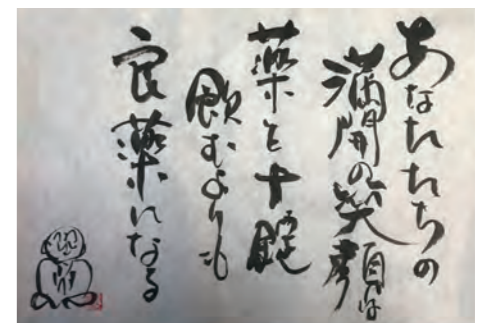 あなたたちの
満開の笑顔は
薬を十錠
飲むよりも
良薬になる